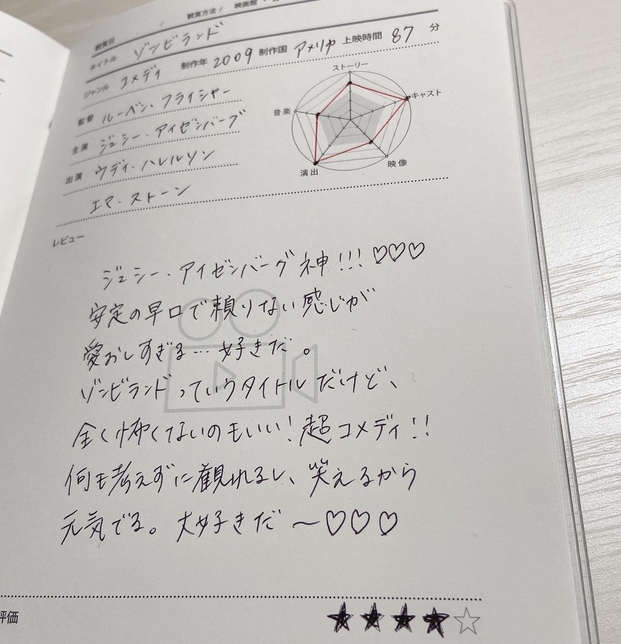 鑑賞日 / 鑑賞方法 / 映画館・
タイトル ゾンビランド
ジャンル コメディ 制作年 2009 制作国 アメリカ 上映時間 87 分
監督 ルーベン・フライシャー
主演 ジェシー・アイゼンバーグ
出演 ウディ・ハレルソン
エマ・ストーン
ストーリー
キャスト
映像
演出
音楽
レビュー
ジェシー・アイゼンバーグ神!!!♡♡♡
安定の早口で頼りない感じが
愛おしすぎる…好きだ。
ゾンビランドっていうタイトルだけど、
全く怖くないのもいい!超コメディ!!
何も考えずに観れるし、笑えるから
元気でる。大好きだ〜♡♡♡
評価 ★★★★☆